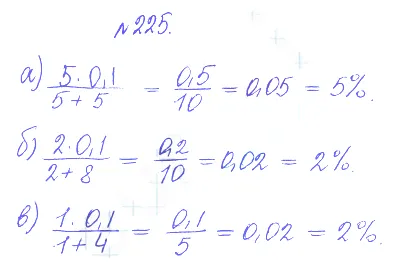 №225.
а) (5·0,1)/(5+5) = 0,5/10 = 0,05 = 5%.
б) (2·0,1)/(2+8) = 0,2/10 = 0,02 = 2%.
в) (1·0,1)/(1+4) = 0,1/5 = 0,02 = 2%.